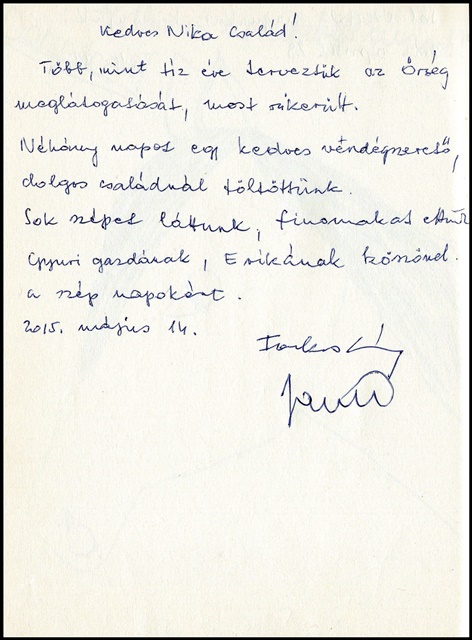 Kedves Nika Család!
Több, mint tíz éve terveztük az Őrség
meglátogatását, most sikerült.
Néhány napot egy kedves vendégszerető,
dolgos családnál töltöttünk.
Sok szépet láttunk, finomakat ettünk
Gyuri gazdának, Erikának köszönd.
a szép napokért.
2015. május 14.